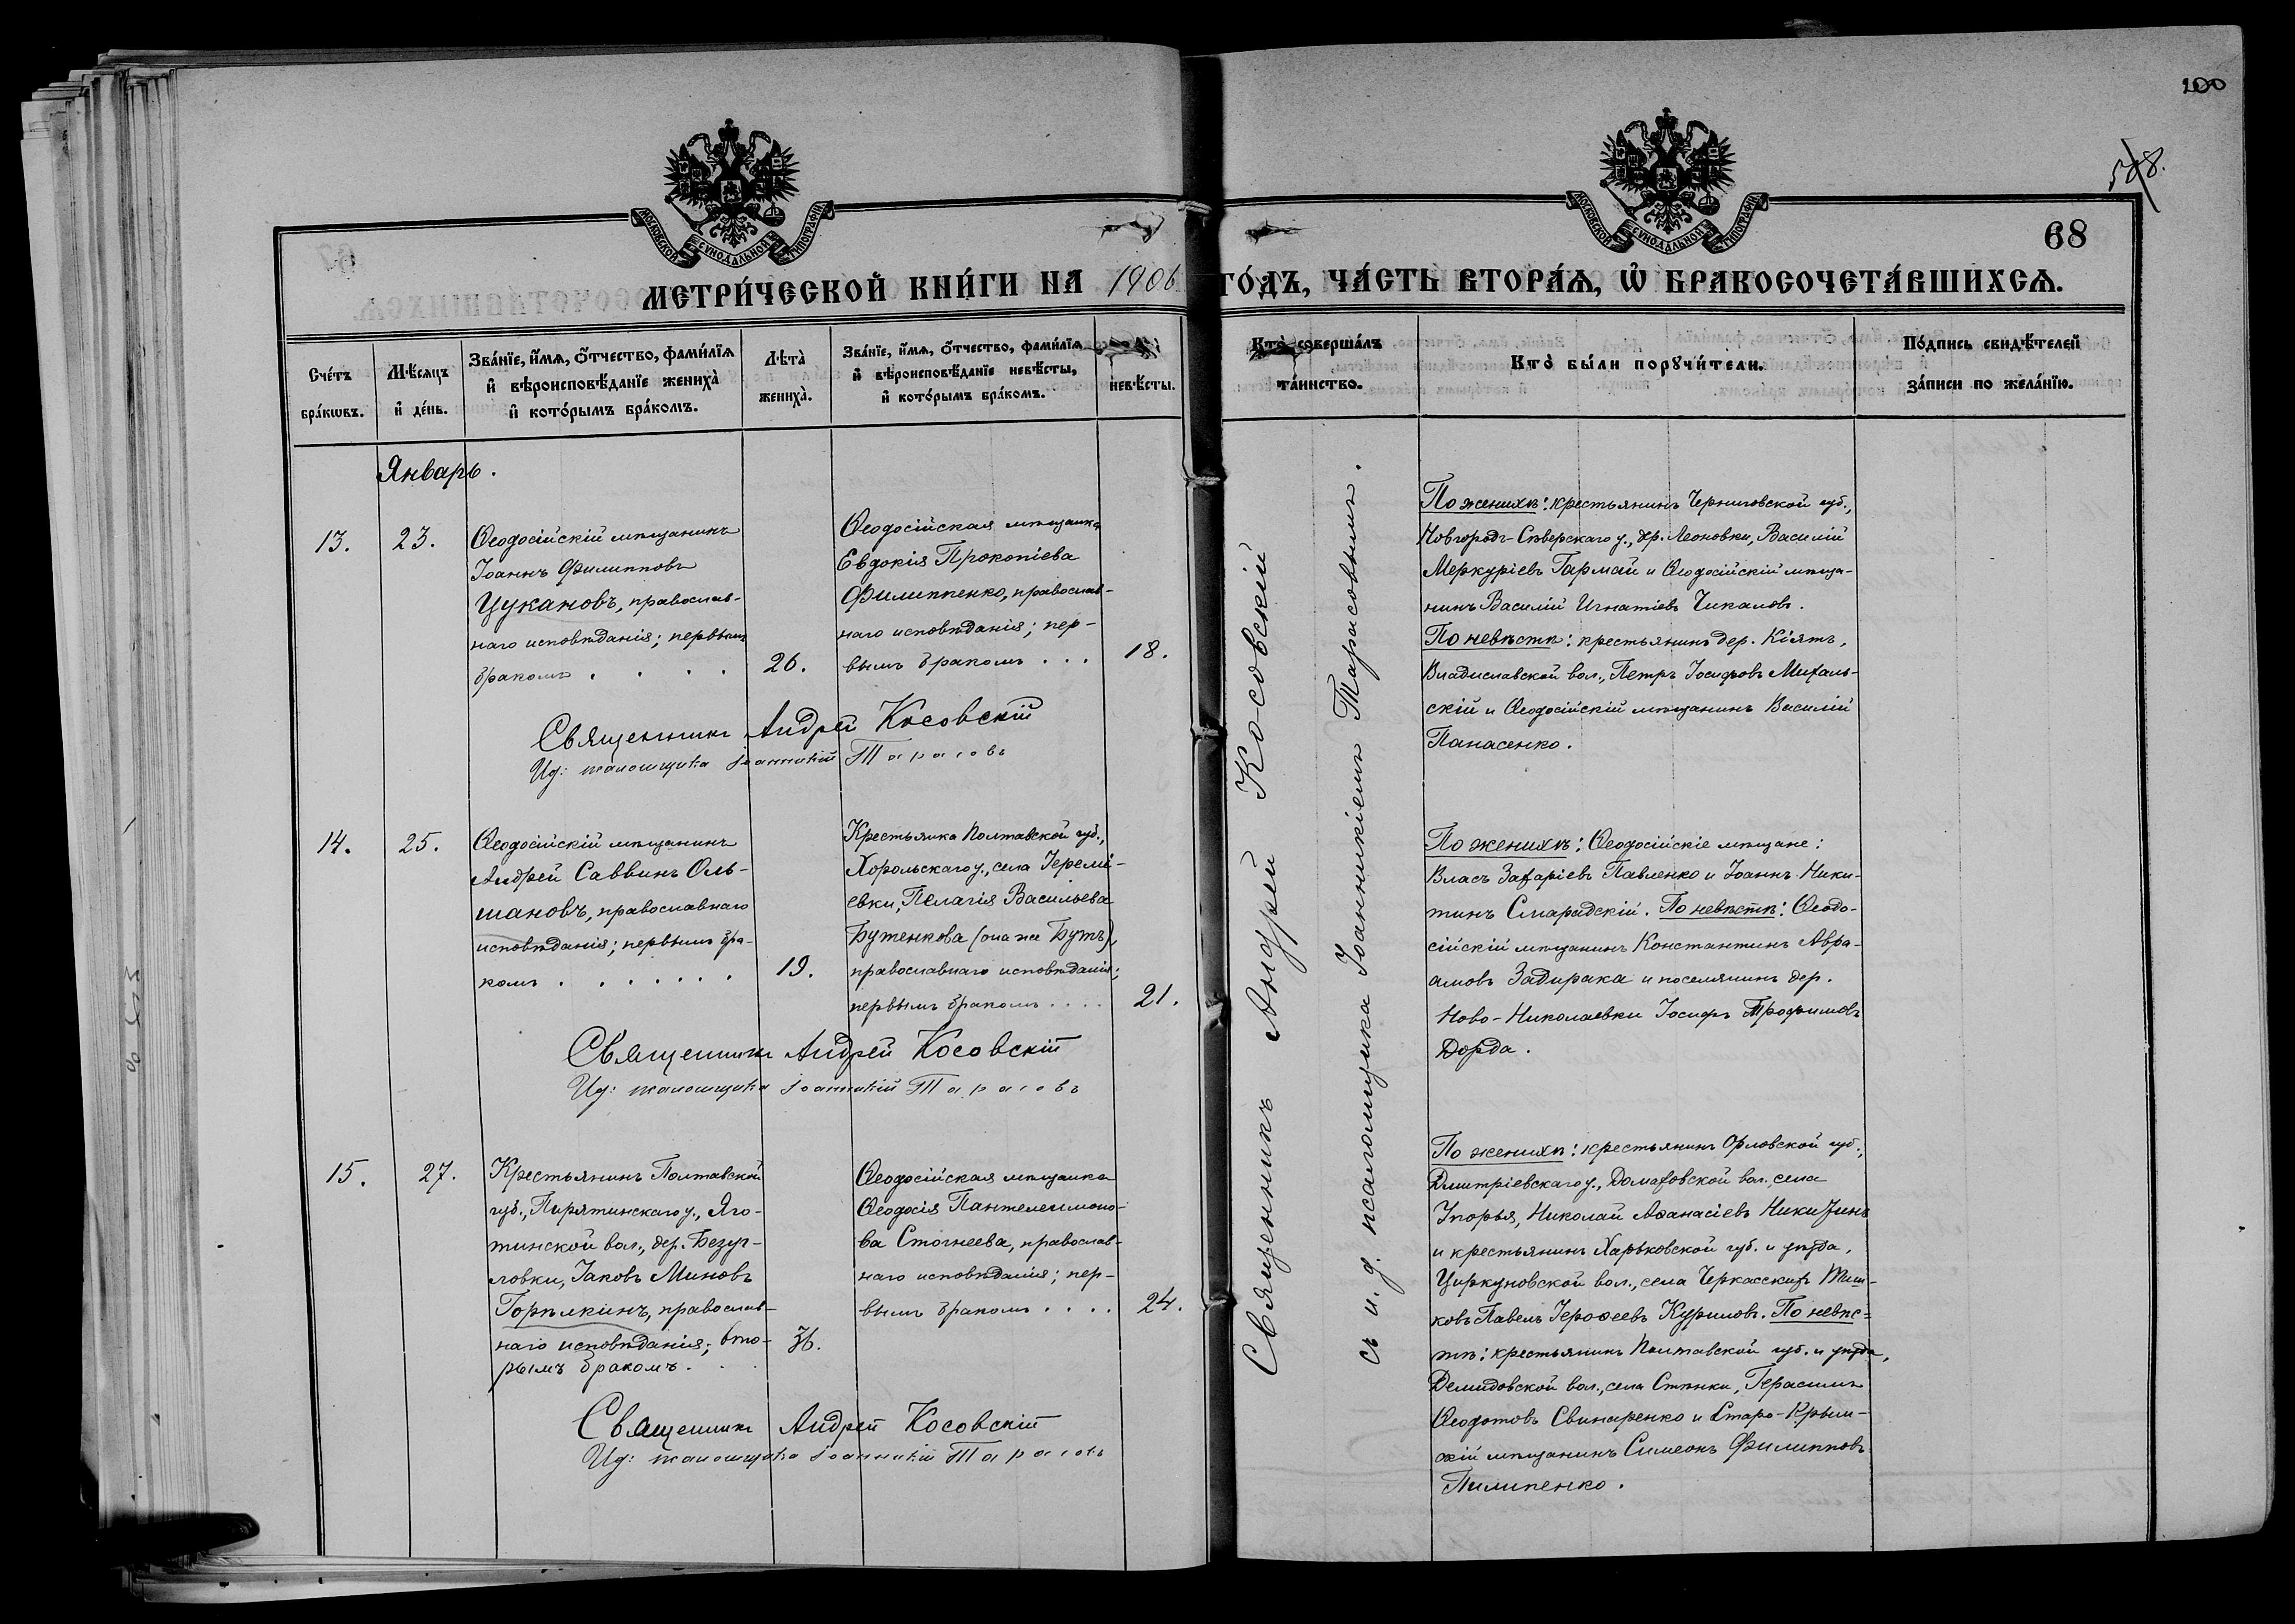 100
508.
68
МОСКОВСКОЙ СѴНОДАЛЬНОЙ ТИПОГРАФІИ
МОСКОВСКОЙ СѴНОДАЛЬНОЙ ТИПОГРАФІИ
МЕТРИ́ЧЕСКОЙ КНИ́ГИ НА 1906 ГО́ДЪ, ЧА́СТЬ ВТОРА́Ѧ, Ѡ҆ БРАКОСОЧЕТА́ВШИХСѦ.
Сче́тъ
бра́кѡвъ.
Мѣ́сяцъ
и҆ де́нь.
Зва́нїе, и҆́мѧ, ѻ҆́тчество, фами́лїѧ
и҆ вѣроисповѣ́данїе жениха̀
и҆ кото́рымъ бра́комъ.
Лѣта̀
жениха̀.
Зва́нїе, и҆́мѧ, ѻ҆́тчество, фами́лїѧ
и҆ вѣроисповѣ́данїе невѣ́сты,
и҆ кото́рымъ бра́комъ.
невѣ́сты.
Кто̀ соверша́лъ
та́инство.
Кто̀ бы́ли порꙋчи́тели.
По́дпись свидѣ́телей
за́писи по жела́нїю.
Январь.
13.
23.
Ѳеодосійскій мѣщанинъ
Іоаннъ Филипповъ
Цукановъ, православ-
наго исповѣданія; первымъ
бракомъ . . . .
26.
Ѳеодосійская мѣщанка
Евдокія Прокопіева
Филиппенко, православ-
наго исповѣданія; пер-
вымъ бракомъ . . .
18.
Священникъ Андрей Косовскій
Ид: псаломщика Іоанникій Тарасовъ
По женихѣ: крестьянинъ Черниговской губ.,
Новгородъ-Сѣверскаго у., др. Леоновки, Василій
Меркуріевъ Гармай и Ѳеодосійскій мѣща-
нинъ Василій Игнатіевъ Чикаловъ.
По невѣстѣ: крестьянинъ дер. Кіятъ,
Владиславской вол., Петръ Іосифовъ Михаль-
скій и Ѳеодосійскій мѣщанинъ Василій
Панасенко.
14.
25.
Ѳеодосійскій мѣщанинъ
Андрей Саввинъ Оль-
шановъ, православнаго
исповѣданія; первымъ бра-
комъ . . . . . .
19.
Крестьянка Полтавской губ.,
Хорольскаго у., села Іеремі-
евки, Пелагія Васильева
Бутенкова (она же Бутъ),
православнаго исповѣданія;
первымъ бракомъ . . . .
21.
Священникъ Андрей Косовскій
Ид: псаломщика Іоанникій Тарасовъ
По женихѣ: Ѳеодосійскіе мѣщане:
Власъ Захаріевъ Павленко и Іоаннъ Ники-
тинъ Смарадскій. По невѣстѣ: Ѳеодо-
сійскій мѣщанинъ Константинъ Авра-
амовъ Задирака и поселянинъ дер.
Ново-Николаевки Іосифъ Трофимовъ
Дорда.
15.
27.
Крестьянинъ Полтавской
губ., Пирятинскаго у., Яго-
тинской вол., дер. Безуг-
ловки, Іаковъ Миновъ
Горѣлкинъ, православ-
наго исповѣданія; вто-
рымъ бракомъ.
36.
Ѳеодосійская мѣщанка
Ѳеодосія Пантелеимоно-
ва Стогнеева, православ-
наго исповѣданія; пер-
вымъ бракомъ . . . .
24.
Священникъ Андрей Косовскій
Ид: псаломщика Іоанникій Тарасовъ
По женихѣ: крестьянинъ Орловской губ.,
Дмитріевскаго у., Домаховской вол. села
Упорья, Николай Аѳанасіевъ Никихинъ
и крестьянинъ Харьковской губ. и уѣзда,
Циркуновской вол., села Черкасскихъ Тиш-
ковъ Павелъ Іероѳеевъ Куриловъ. По невѣс-
тѣ: крестьянинъ Полтавской губ. и уѣзда,
Демидовской вол., села Стѣнки, Герасимъ
Ѳеодотовъ Свинаренко и Старо-Крым-
скій мѣщанинъ Симеонъ Филипповъ
Пилипенко.
Священникъ Андрей Косовскій
съ и. д. псаломщика Іоанникіемъ Тарасовымъ.